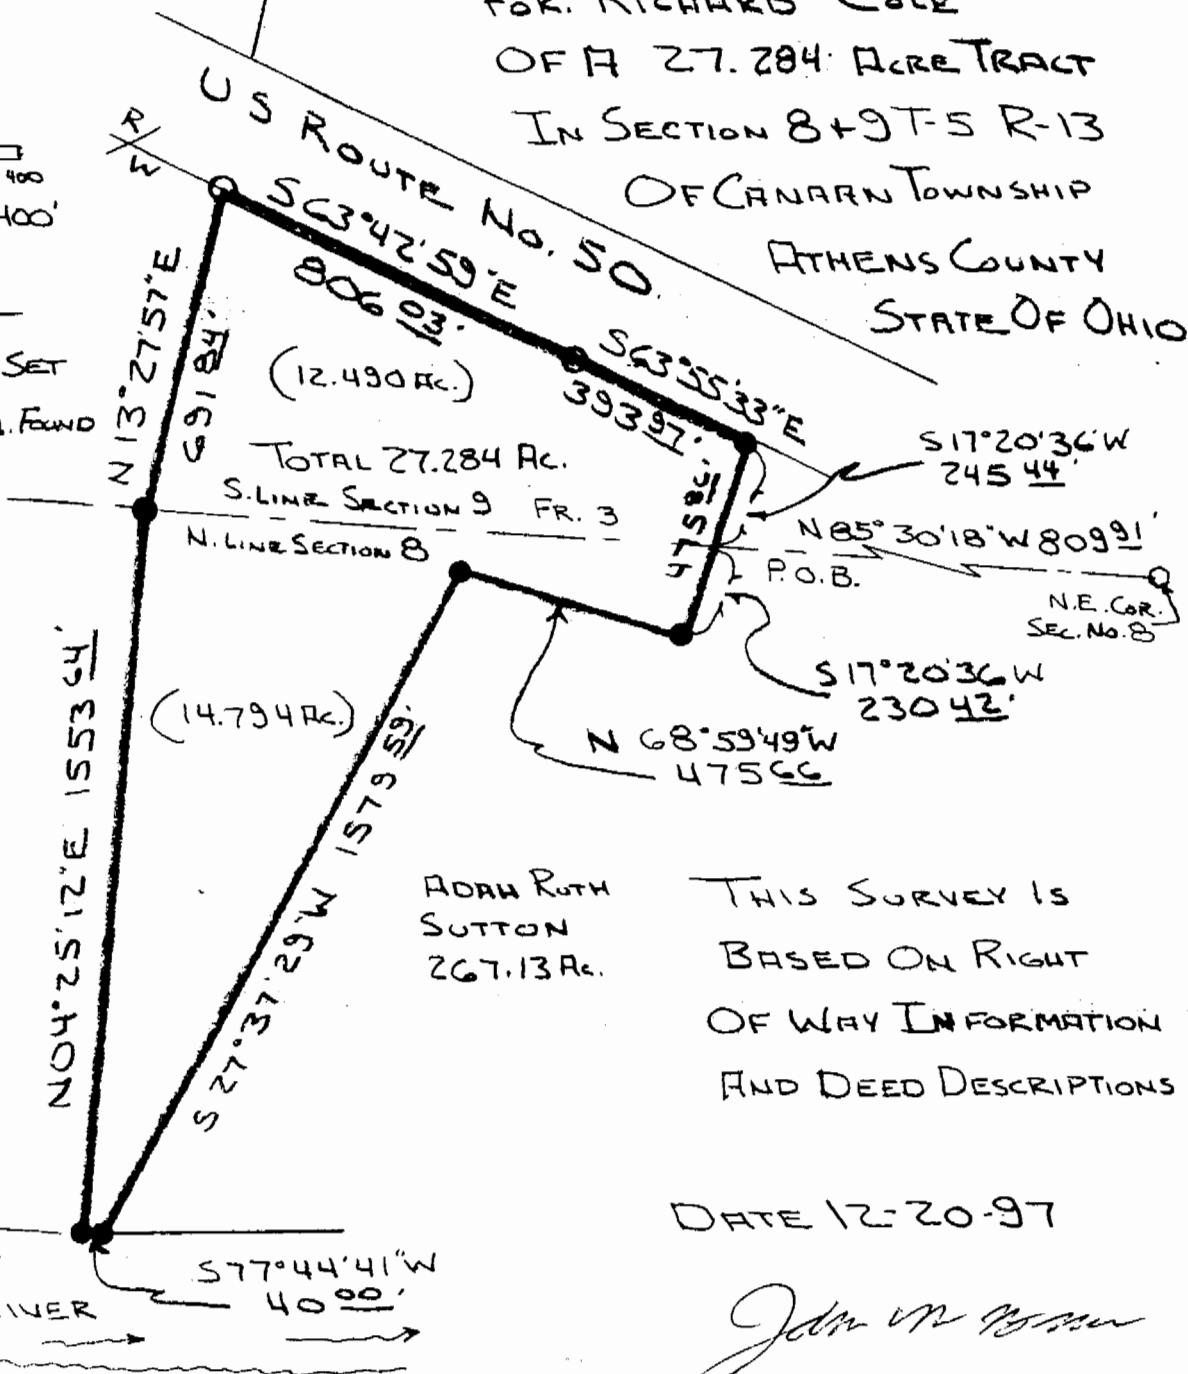 FOR: RICHARD COLE
OF A 27.284 ACRE TRACT
IN SECTION 8+9 T-5 R-13
OF CANAAN TOWNSHIP
ATHENS COUNTY
STATE OF OHIO
US ROUTE No. 50.
R/W
400
400'
SET
FOUND
S 63°42'59"E
806 03'
S 63°55'33"E
393 97'
N 13°27'57"E
691 84'
(12.490 AC.)
TOTAL 27.284 AC.
S. LINE SECTION 9 FR. 3
N. LINE SECTION 8
475 86'
S 17°20'36"W
245 44'
N 85°30'18"W 809 91'
P.O.B.
N.E. COR.
SEC. NO. 8
S 17°20'36"W
230 42'
N 68°59'49"W
475 66
(14.794 AC.)
N 04°25'12"E 1553 64'
S 27°37'29"W 1579 59'
ADAH RUTH
SUTTON
267.13 AC.
THIS SURVEY IS
BASED ON RIGHT
OF WAY INFORMATION
AND DEED DESCRIPTIONS
DATE 12-20-97
S 77°44'41"W
40 00'
IVER